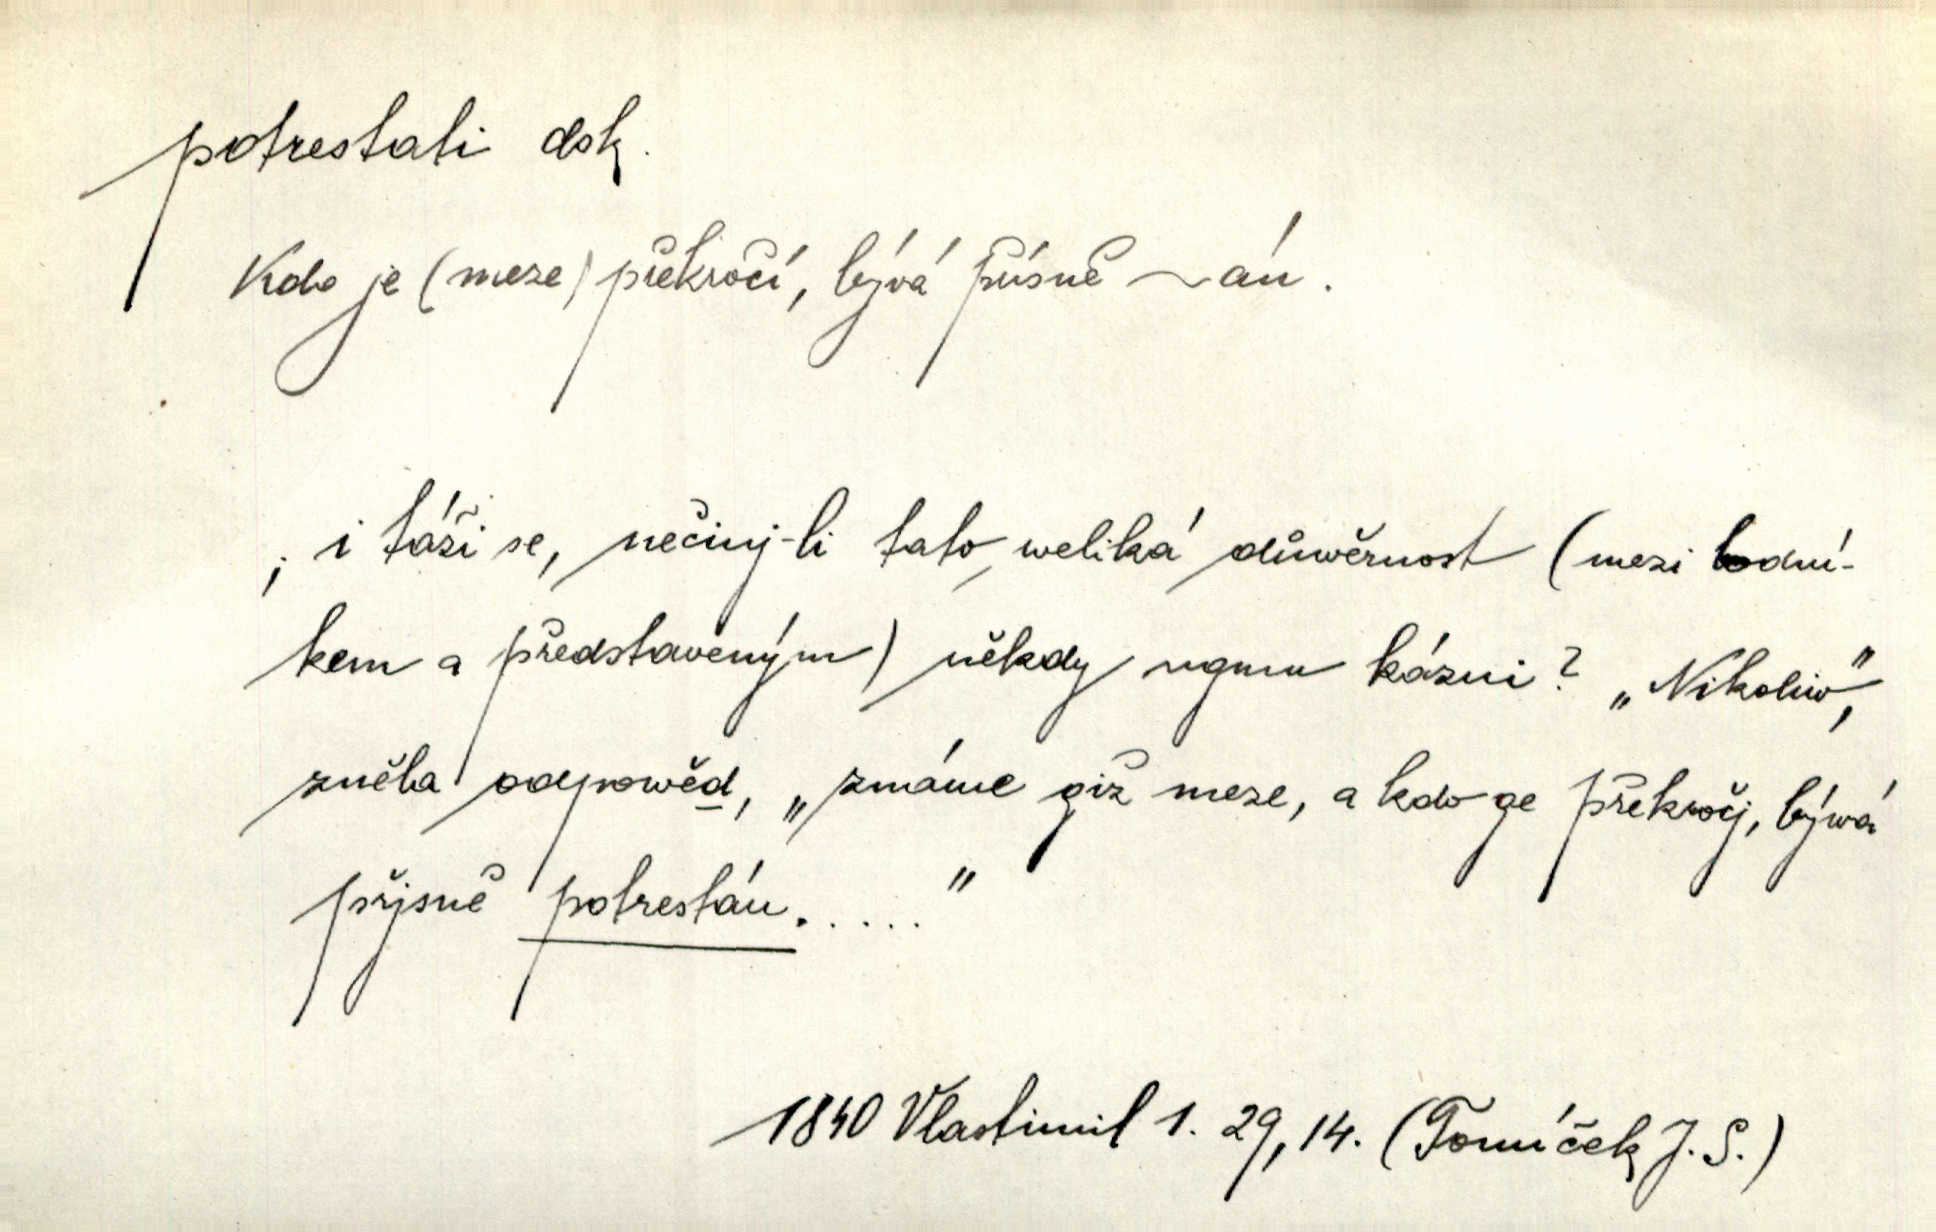 potrestati dok.
Kdo je (meze) překročí, bývá přísně ~án.
; i táži se, nečinj-li tato weliká důwěrnost (mezi lodní-
kem a představeným) někdy ugmu kázni? „Nikoliw",
zněla odpowěd, „známe giž meze, a kdo ge překročj, býwá
přjsně potrestán....."
1840 Vlastimil 1. 29, 14. (Tomíček J. S.)